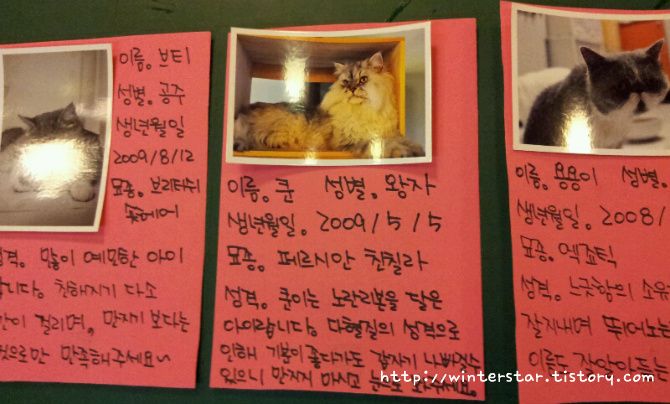 이름. 브티
성별. 공주
생년월일
2009/8/12
묘종. 브리티쉬
숏헤어
성격. 많이 예민한 아이
랍니다. 친해지기 다소
시간이 걸리며, 만지기 보다는
눈으로만 만족해주세요~
이름. 쿤 성별. 왕자
생년월일. 2009/5/5
묘종. 페르시안 친칠라
성격. 쿤이는 노란리본을 달은
아이랍니다. 다혈질의 성격으로
인해 기분이 좋다가도 갑자기 나빠질수
있으니 만지지 마시고 눈으로 봐주세요.
이름. 용용이 성별.
생년월일. 2008/
묘종. 엑죠틱
성격. 느긋함의
잘지내며 뛰어노
이름도 잘알아듣는
http://winterstar.tistory.com/